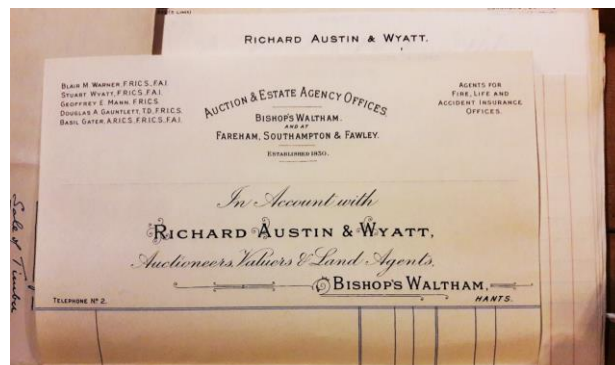 RICHARD AUSTIN & WYATT.
BLAIR M. WARNER, F.R.I.C.S., F.A.I.
STUART WYATT, F.R.I.C.S., F.A.I.
GEOFFREY E. MANN, F.R.I.C.S.
DOUGLAS A. GAUNTLETT, T.D., F.R.I.C.S.
BASIL GATER, A.R.I.C.S., F.R.I.C.S., F.A.I.
AUCTION & ESTATE AGENCY OFFICES.
BISHOP'S WALTHAM.
AND AT
FAREHAM, SOUTHAMPTON & FAWLEY.
ESTABLISHED 1850.
AGENTS FOR
FIRE, LIFE AND
ACCIDENT INSURANCE
OFFICES.
In Account with
RICHARD AUSTIN & WYATT,
Auctioneers, Valuors & Land Agents,
BISHOP'S WALTHAM,
HANTS.
TELEPHONE Nº 2.
Sale of Timber